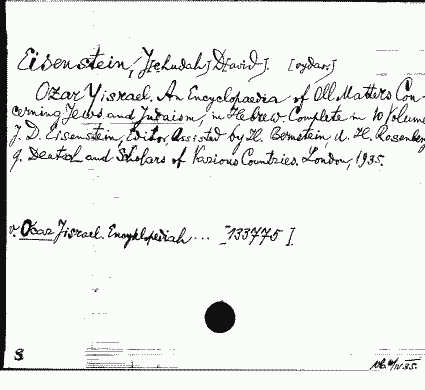 Eisenstein, J[ehudah] D[avid]. [wydawc.]
Ozar Yisrael. An Encyclopaedia of All Matters Con-
cerning Jews and Judaism, in Hebrew. Complete in 10 Volumes
J. D. Eisenstein, Editor, Assisted by H. Bernstein, d. H. Rosenberg
g. Deutsch and Scholars of Various Countries. London, 1935.
v. Ozar Jisrael. Encyklopediah ... [133775].
S